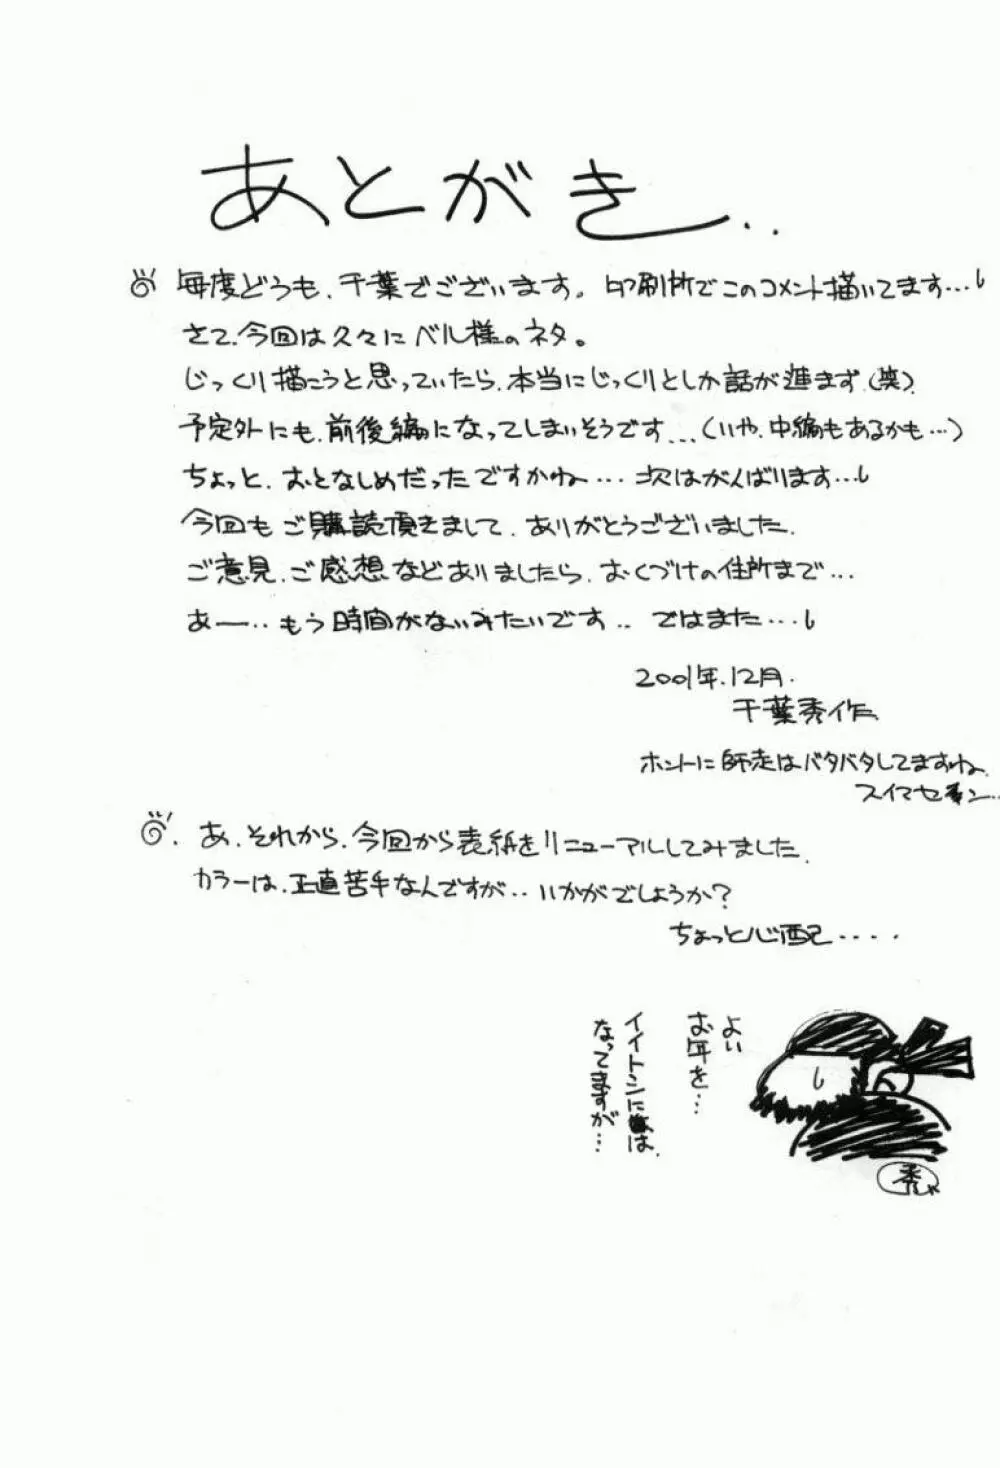 あとがき..
毎度どうも、千葉でございます。印刷所でこのコメント描いてます…
さて、今回は久々にベル様のネタ。
じっくり描こうと思っていたら、本当にじっくりとしか話が進まず、(笑)
予定外にも、前後編になってしまいそうです…(いや、中編もあるかも…)
ちょっと、おとなしめだったですかね…次はがんばります…
今回もご購読頂きまして、ありがとうございました。
ご意見、ご感想などありましたら、おくづけの住所まで…
あー…もう時間がないみたいです.. ではまた…
2001年.12月.
千葉秀作
ホントに師走はバタバタしてますね。
スイマセン…
あ、それから、今回から表紙をリニューアルしてみました。
カラーは、正直苦手なんですが..いかがでしょうか?
ちょっと心配....
よい
お年を…
イイトシには、
なってますが…
秀